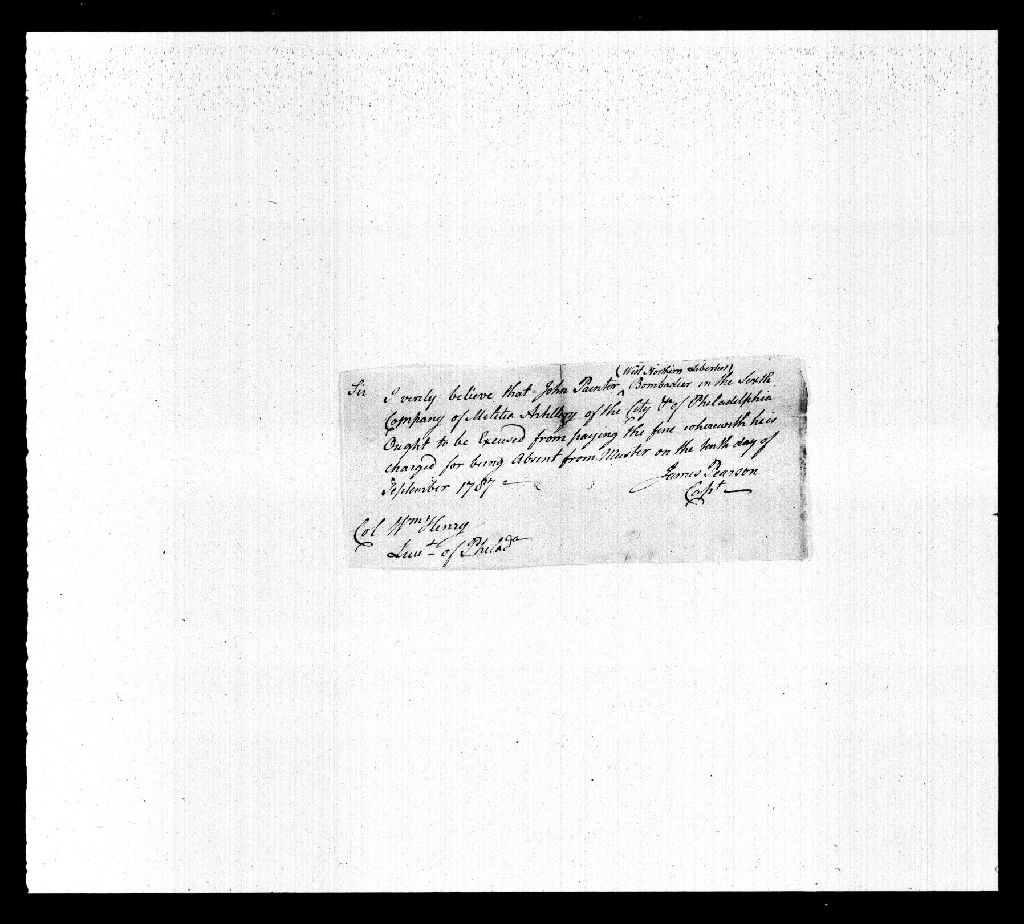 (West Northern Liberties)
Sir I verily believe that John Painter ^ Bombadier in the Sixth
Company of Militia Artillery of the City &c of Philadelphia
Ought to be Excused from paying the fine wherewith he is
charged for being Absent from Muster on the tenth day of
September 1787
James Pearson
Capt
Col Wm Henry
Lieut of Philada